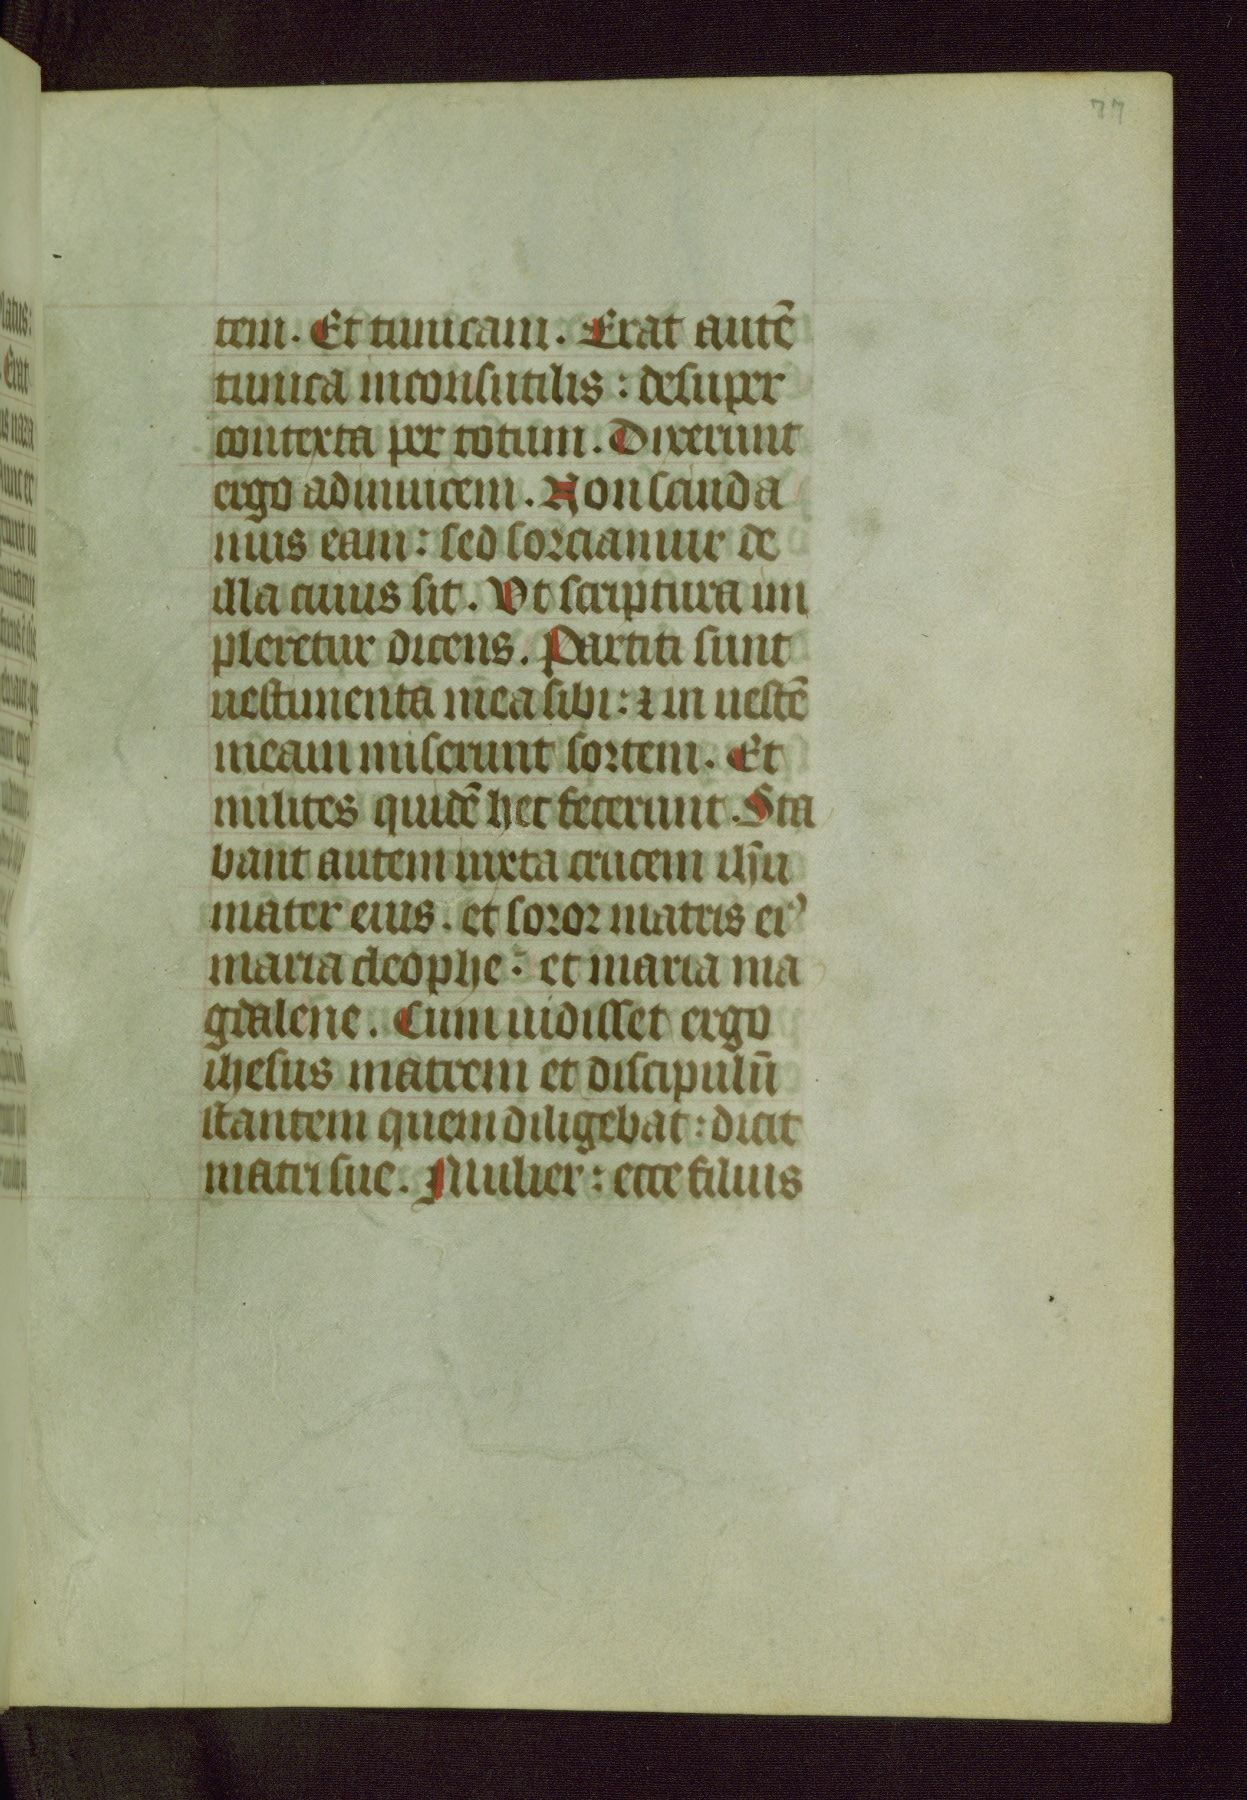 77
tem. Et tunicam. Erat autē
tunica inconsutilis : desuper
contexta per totum. Dixerunt
ergo adinuicem. Non scinda
mus eam : sed sorciamur de
illa cuius sit. Vt scriptura im
pleretur dicens. Partiti sunt
uestimenta mea sibi : ⁊ in uestē
meam miserunt sortem. Et
milites quidē hec fecerunt. Sta
bant autem iuxta crucem ihū
mater eius. et soror matris eiꝰ
maria cleophe : et maria ma
gdalene. Cum uidisset ergo
ihesus matrem et discipulū
stantem quem diligebat : dicit
matri sue. Mulier : ecce filius